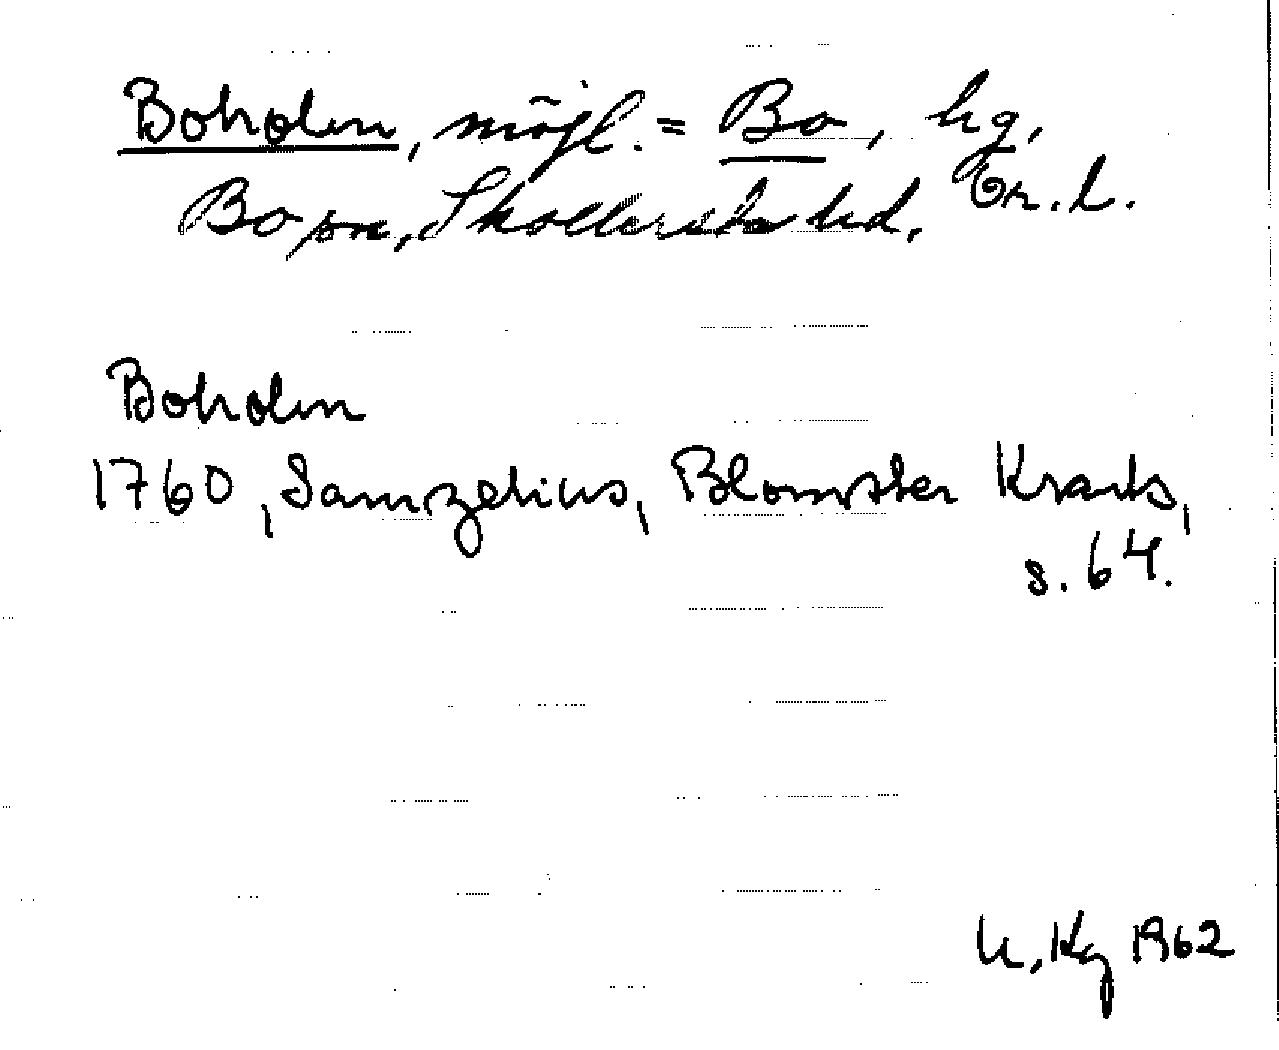 Boholen, möjl. = Bo, hg,
Bo sn, Skollersta hd, Ör. l.
Boholen
1760, Samzelius, Blomster Krants,
s. 64.
U. Kg 1962